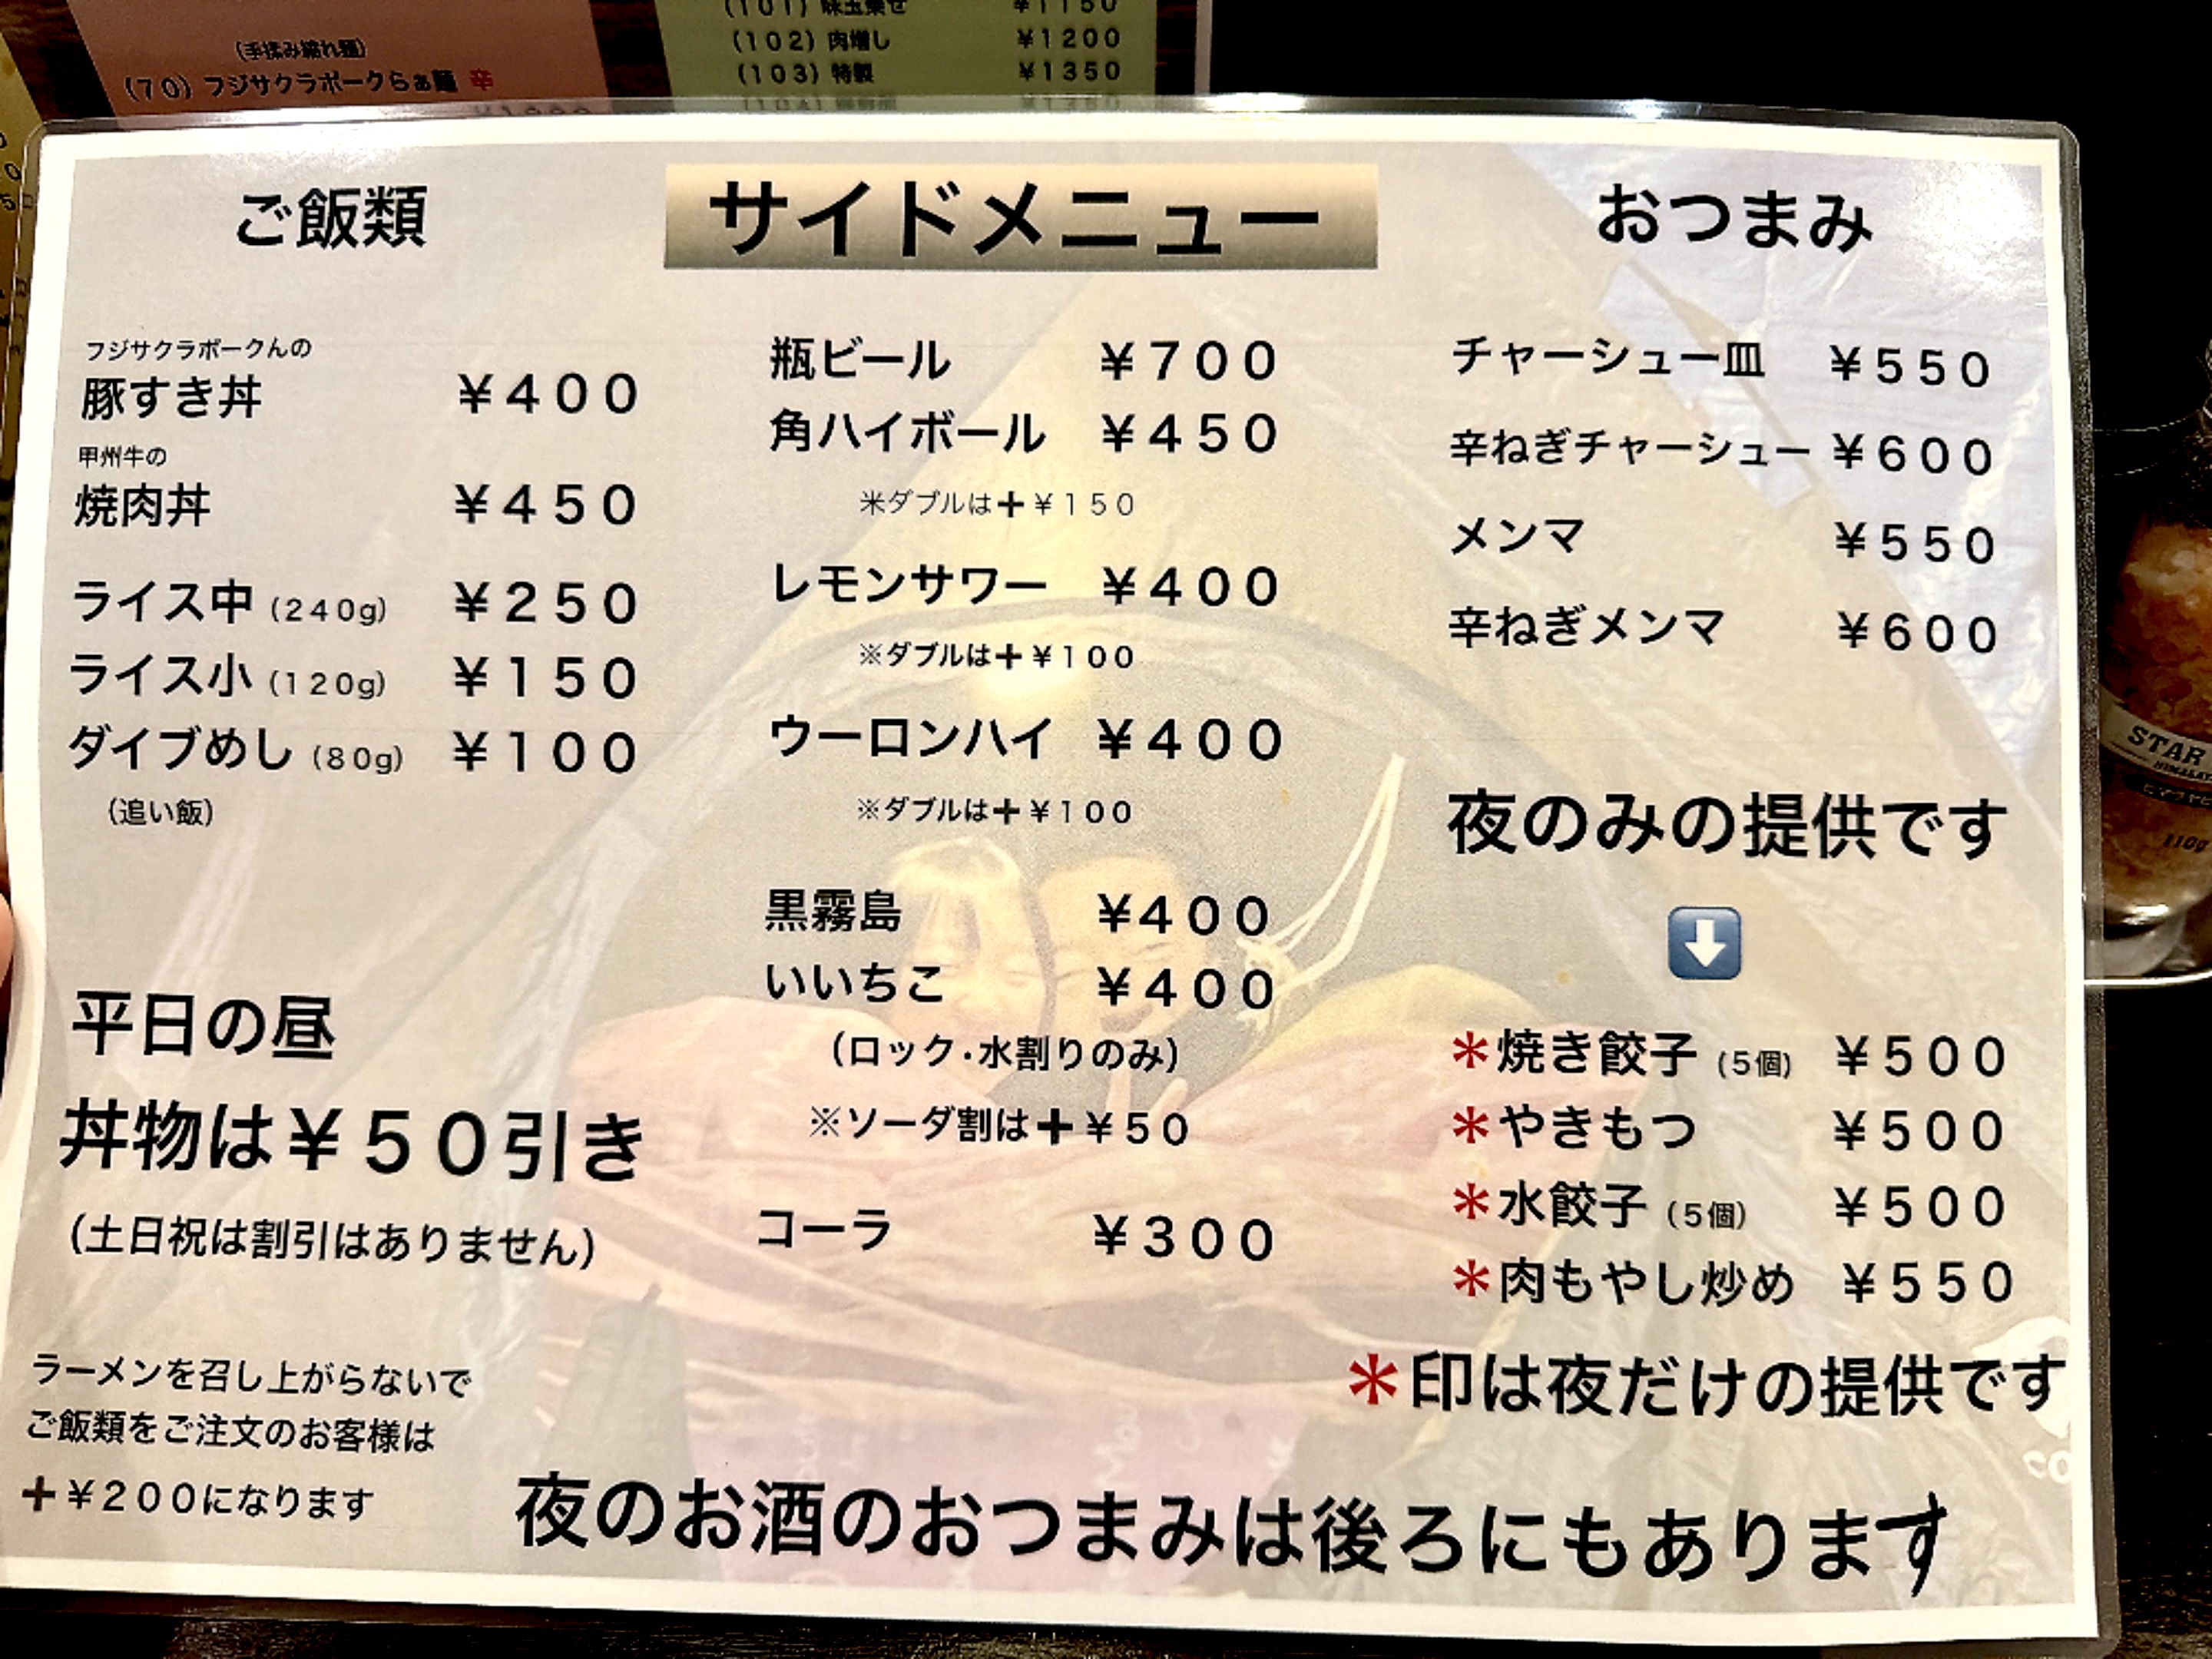 (手揉み縮れ麺)
(70) フジサクラポークらぁ麺 辛
(101) 味玉乗せ ¥1150
(102) 肉増し ¥1200
(103) 特製 ¥1350
ご飯類
フジサクラポークんの
豚すき丼 ¥400
甲州牛の
焼肉丼 ¥450
ライス中 (240g) ¥250
ライス小 (120g) ¥150
ダイブめし (80g) ¥100
(追い飯)
平日の昼
丼物は¥50引き
(土日祝は割引はありません)
ラーメンを召し上がらないで
ご飯類をご注文のお客様は
+¥200になります
サイドメニュー
瓶ビール ¥700
角ハイボール ¥450
米ダブルは+¥150
レモンサワー ¥400
※ダブルは+¥100
ウーロンハイ ¥400
※ダブルは+¥100
黒霧島 ¥400
いいちこ ¥400
(ロック・水割りのみ)
※ソーダ割は+¥50
コーラ ¥300
おつまみ
チャーシュー皿 ¥550
辛ねぎチャーシュー ¥600
メンマ ¥550
辛ねぎメンマ ¥600
夜のみの提供です
⬇
*焼き餃子 (5個) ¥500
*やきもつ ¥500
*水餃子 (5個) ¥500
*肉もやし炒め ¥550
*印は夜だけの提供です
夜のお酒のおつまみは後ろにもあります
STAR
110g